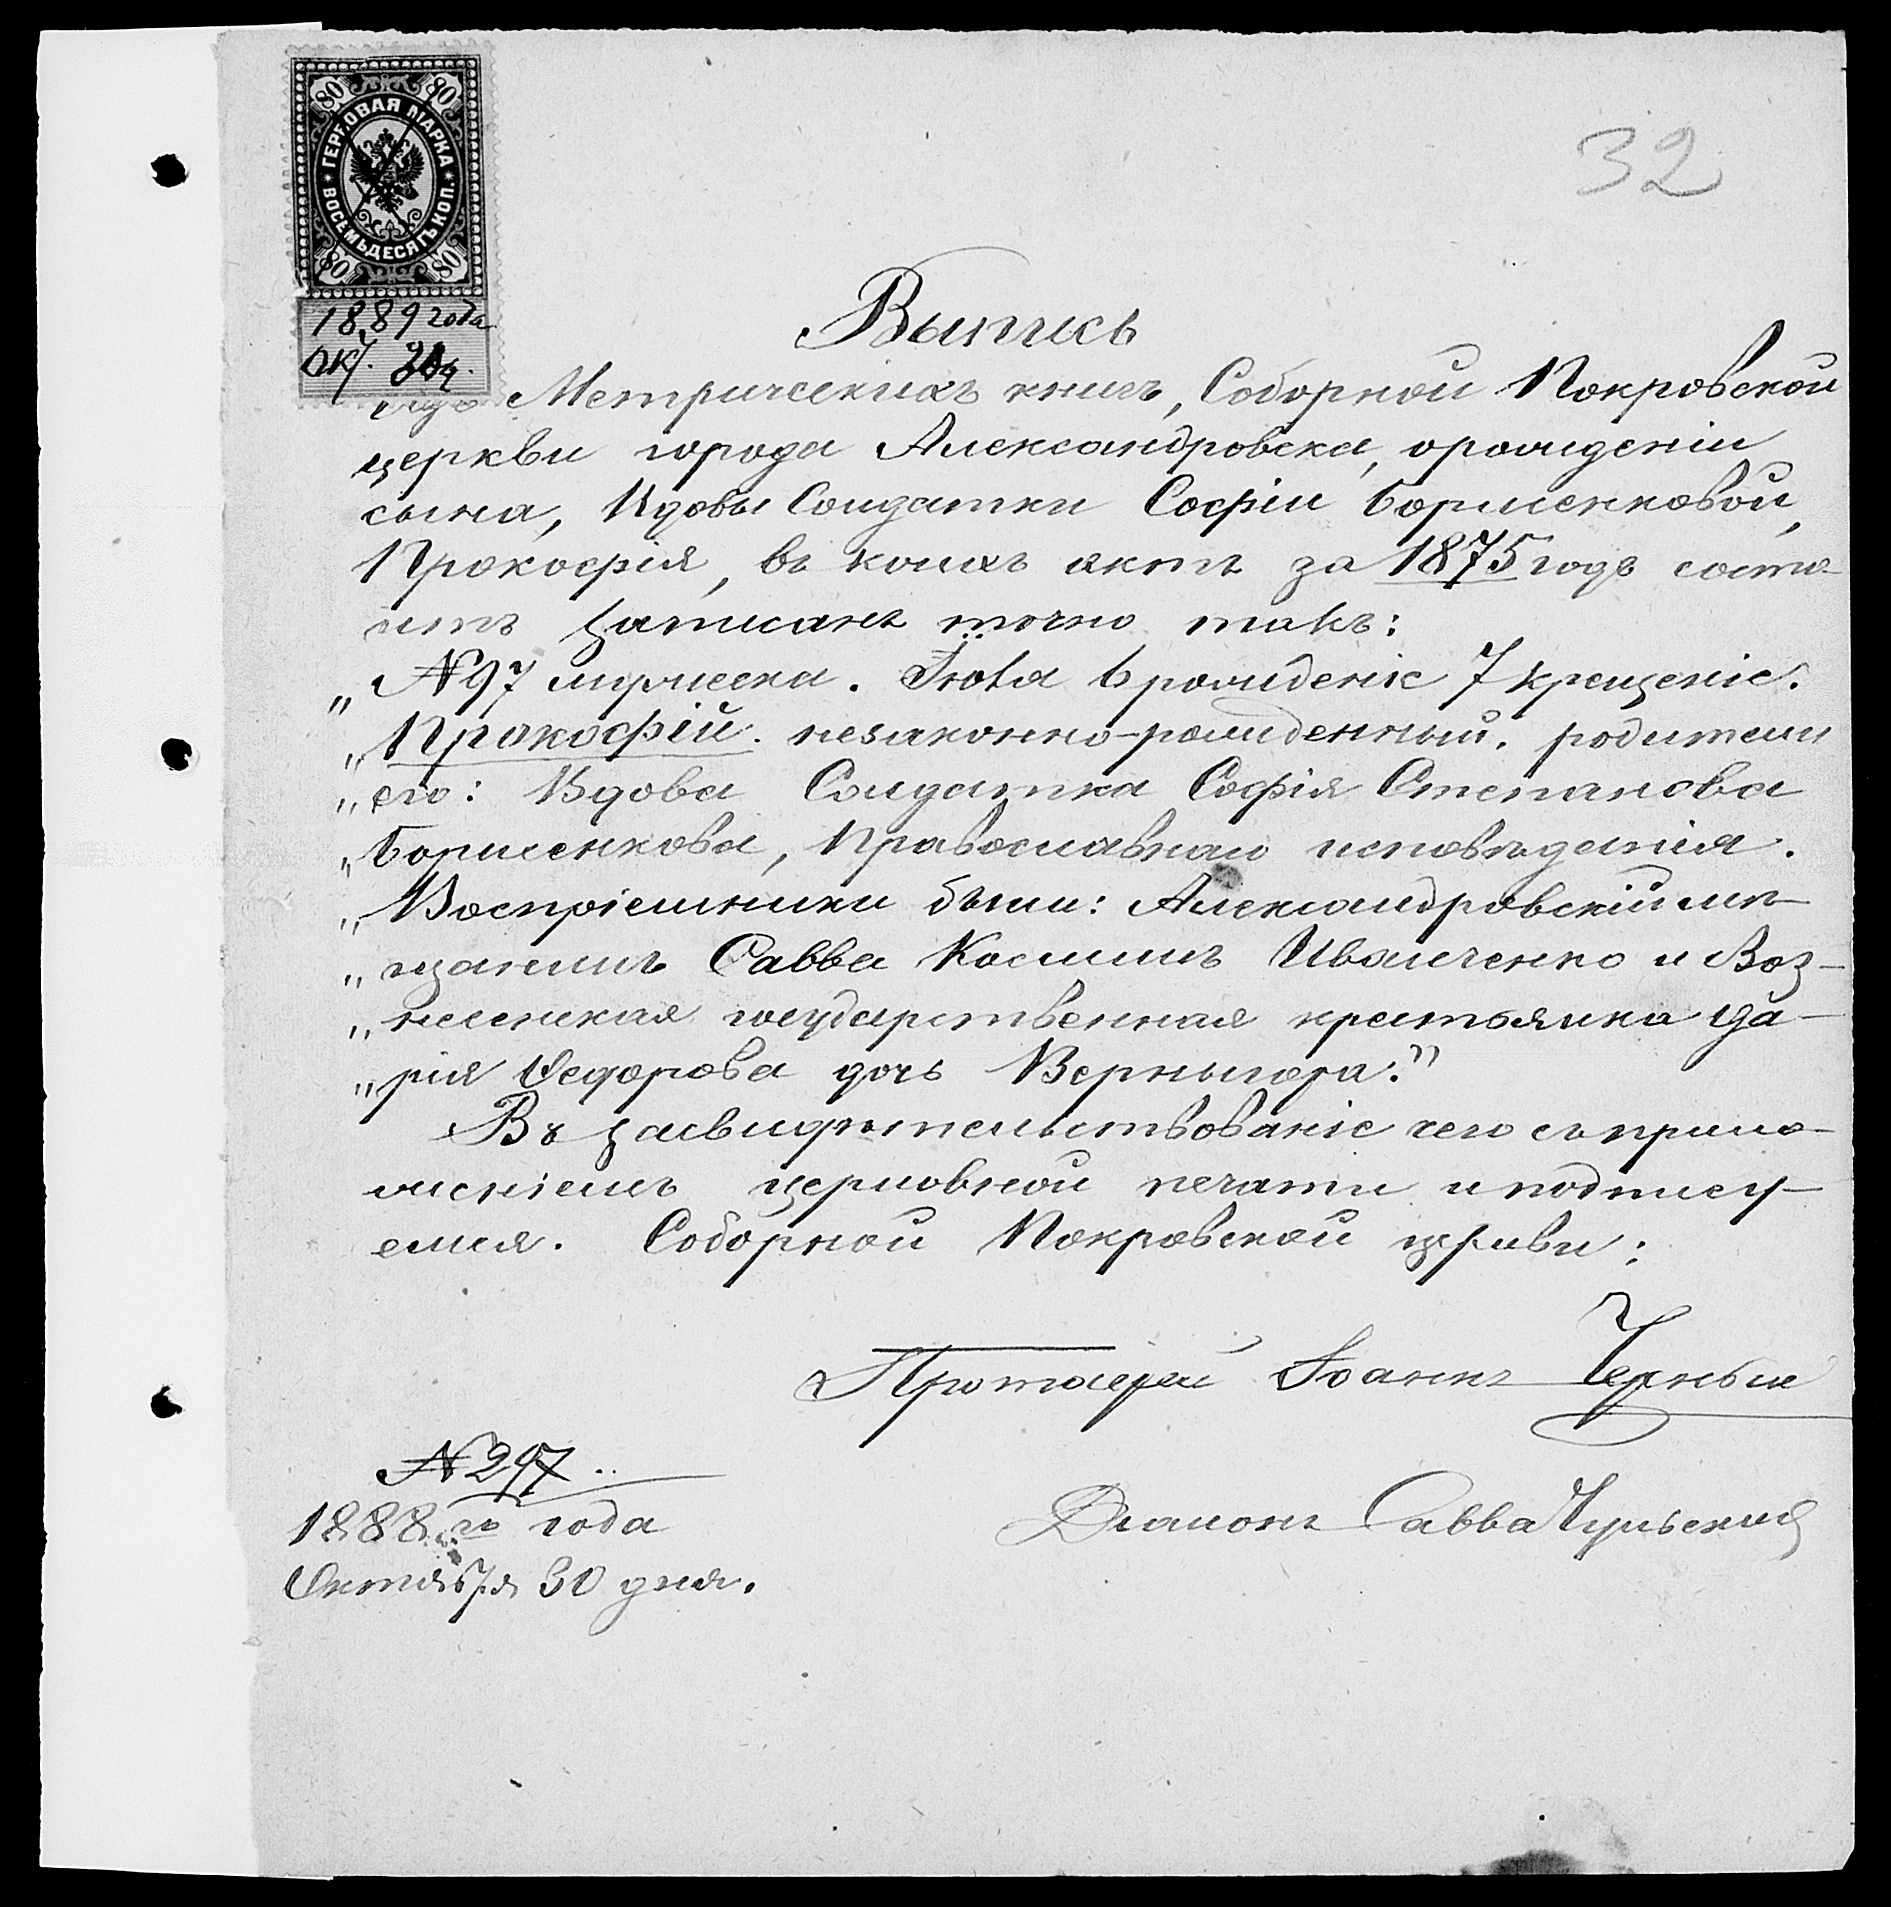 32
80 80
ГЕРБОВАЯ МАРКА
ВОСЕМЬДЕСЯТЪ КОП.
80 80
1889 года
Окт.
Выпись
Изъ Метрическихъ книгъ, Соборной Покровской
церкви города Александровска, о рожденіи
сына, Вдовы Солдатки Софіи Борисенковой,
Прокофія, въ коихъ актъ за 1875 годъ состо-
итъ записанъ точно такъ:
„ №97 мужеска. Іюля 6 рожденіе 7 крещеніе.
„ Прокофій. незаконно-рожденный. родители
„ его: Вдова Солдатка Софія Степанова
„ Борисенкова, Православнаго исповѣданія.
„ Воспріемники были: Александровскій мѣ-
„ щанинъ Савва Косминъ Иванченко и Воз-
„ несенская государственная крестьянка Да-
„ рія Федорова дочь Вернигора."
Въ засвидѣтельствованіе чего съ прило-
женіемъ церковной печати и подпису-
емся. Соборной Покровской церкви:
Протоіерей Іоаннъ Черный
№297
1888 го года
Октября 30 дня.
Діаконъ Савва